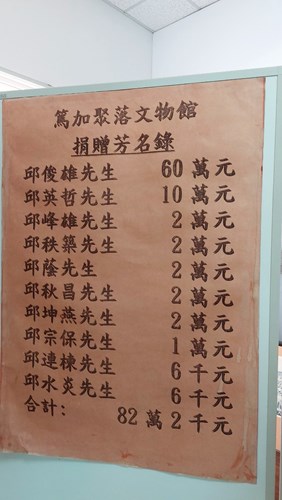 篤加聚落文物館
捐贈芳名錄
邱俊雄先生 60萬元
邱英哲先生 10萬元
邱峰雄先生 2萬元
邱秩築先生 2萬元
邱蔭先生 2萬元
邱秋昌先生 2萬元
邱坤燕先生 2萬元
邱宗保先生 1萬元
邱連棟先生 6千元
邱水炎先生 6千元
合計: 82萬2千元